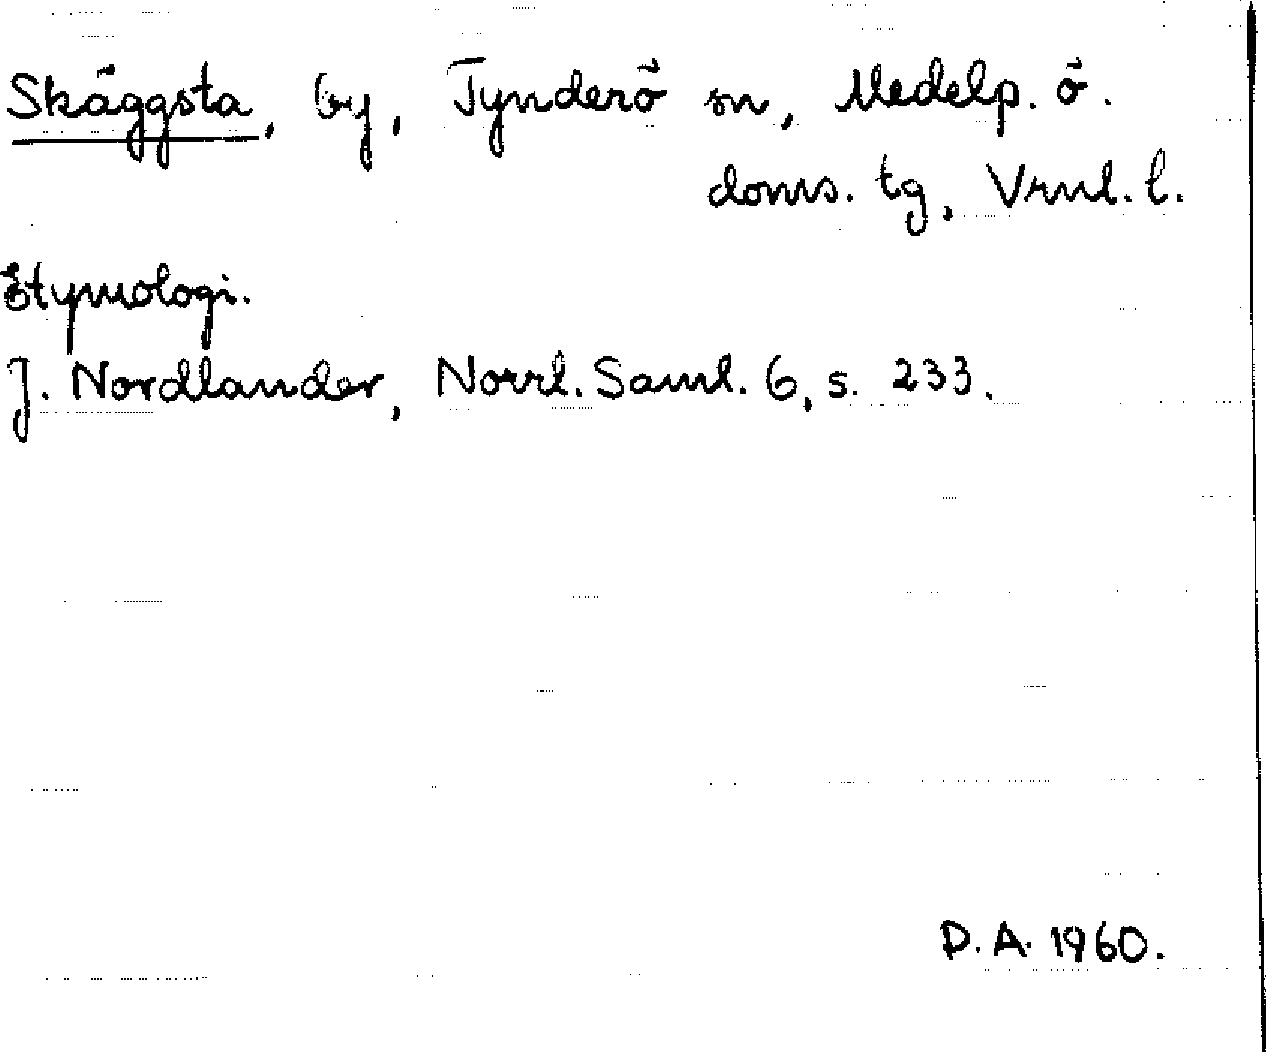 Skäggsta, by, Tynderö sn, Medelp. ö.
doms. tg, Vrnl. l.
Etymologi.
J. Nordlander, Norrl. Saml. 6, s. 233.
D. A. 1960.